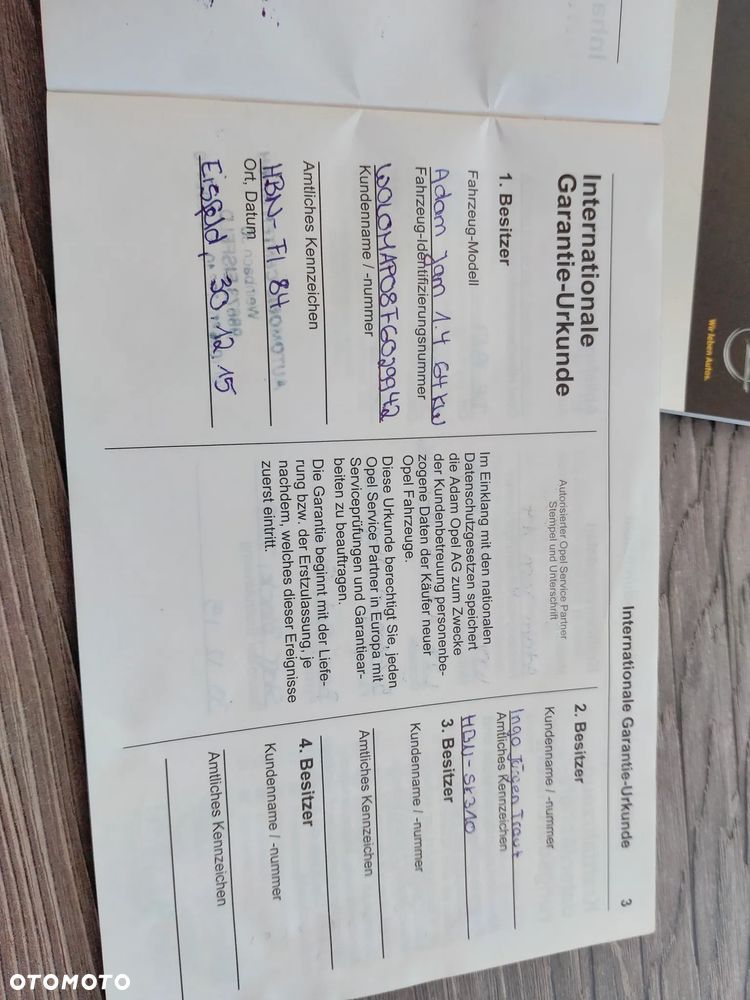 Internationale Garantie-Urkunde 3
Internationale
Garantie-Urkunde
1. Besitzer
Fahrzeug-Modell
Adam Jam 1.4 64 kW
Fahrzeug-Identifizierungsnummer
W0L0MAP08F6029942
Kundenname / -nummer
Amtliches Kennzeichen
HBN - FI 84
Ort, Datum
Eisfeld, 30.12.15
Autorisierter Opel Service Partner
Stempel und Unterschrift
Im Einklang mit den nationalen
Datenschutzgesetzen speichert
die Adam Opel AG zum Zwecke
der Kundenbetreuung personenbe-
zogene Daten der Käufer neuer
Opel Fahrzeuge.
Diese Urkunde berechtigt Sie, jeden
Opel Service Partner in Europa mit
Serviceprüfungen und Garantiear-
beiten zu beauftragen.
Die Garantie beginnt mit der Liefe-
rung bzw. der Erstzulassung, je
nachdem, welches dieser Ereignisse
zuerst eintritt.
2. Besitzer
Kundenname / -nummer
Ingo Jürgen Traut
Amtliches Kennzeichen
HBN - SK310
3. Besitzer
Kundenname / -nummer
Amtliches Kennzeichen
4. Besitzer
Kundenname / -nummer
Amtliches Kennzeichen
Wir leben Autos.
OTOMOTO